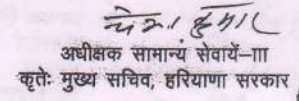 अधीक्षक सामान्यं सेवायें-III
कृतेः मुख्य सचिव, हरियाणा सरकार